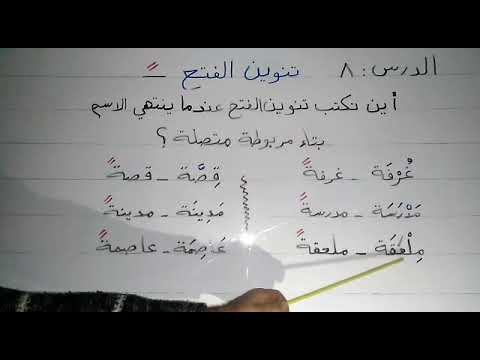 الدرس: ٨ تنوين الفتحِ ـًـ
أين تكتب تنوين الفتح عندما ينتهي الاسم
بتاء مربوطة متصلة ؟
غُرْفَة - غرفةً قِصَّة - قصةً
مَدْرَسَة - مدرسةً مَدِينَة - مدينةً
مِلْعَقَة - ملعقةً عَاصِمَة - عاصمةً